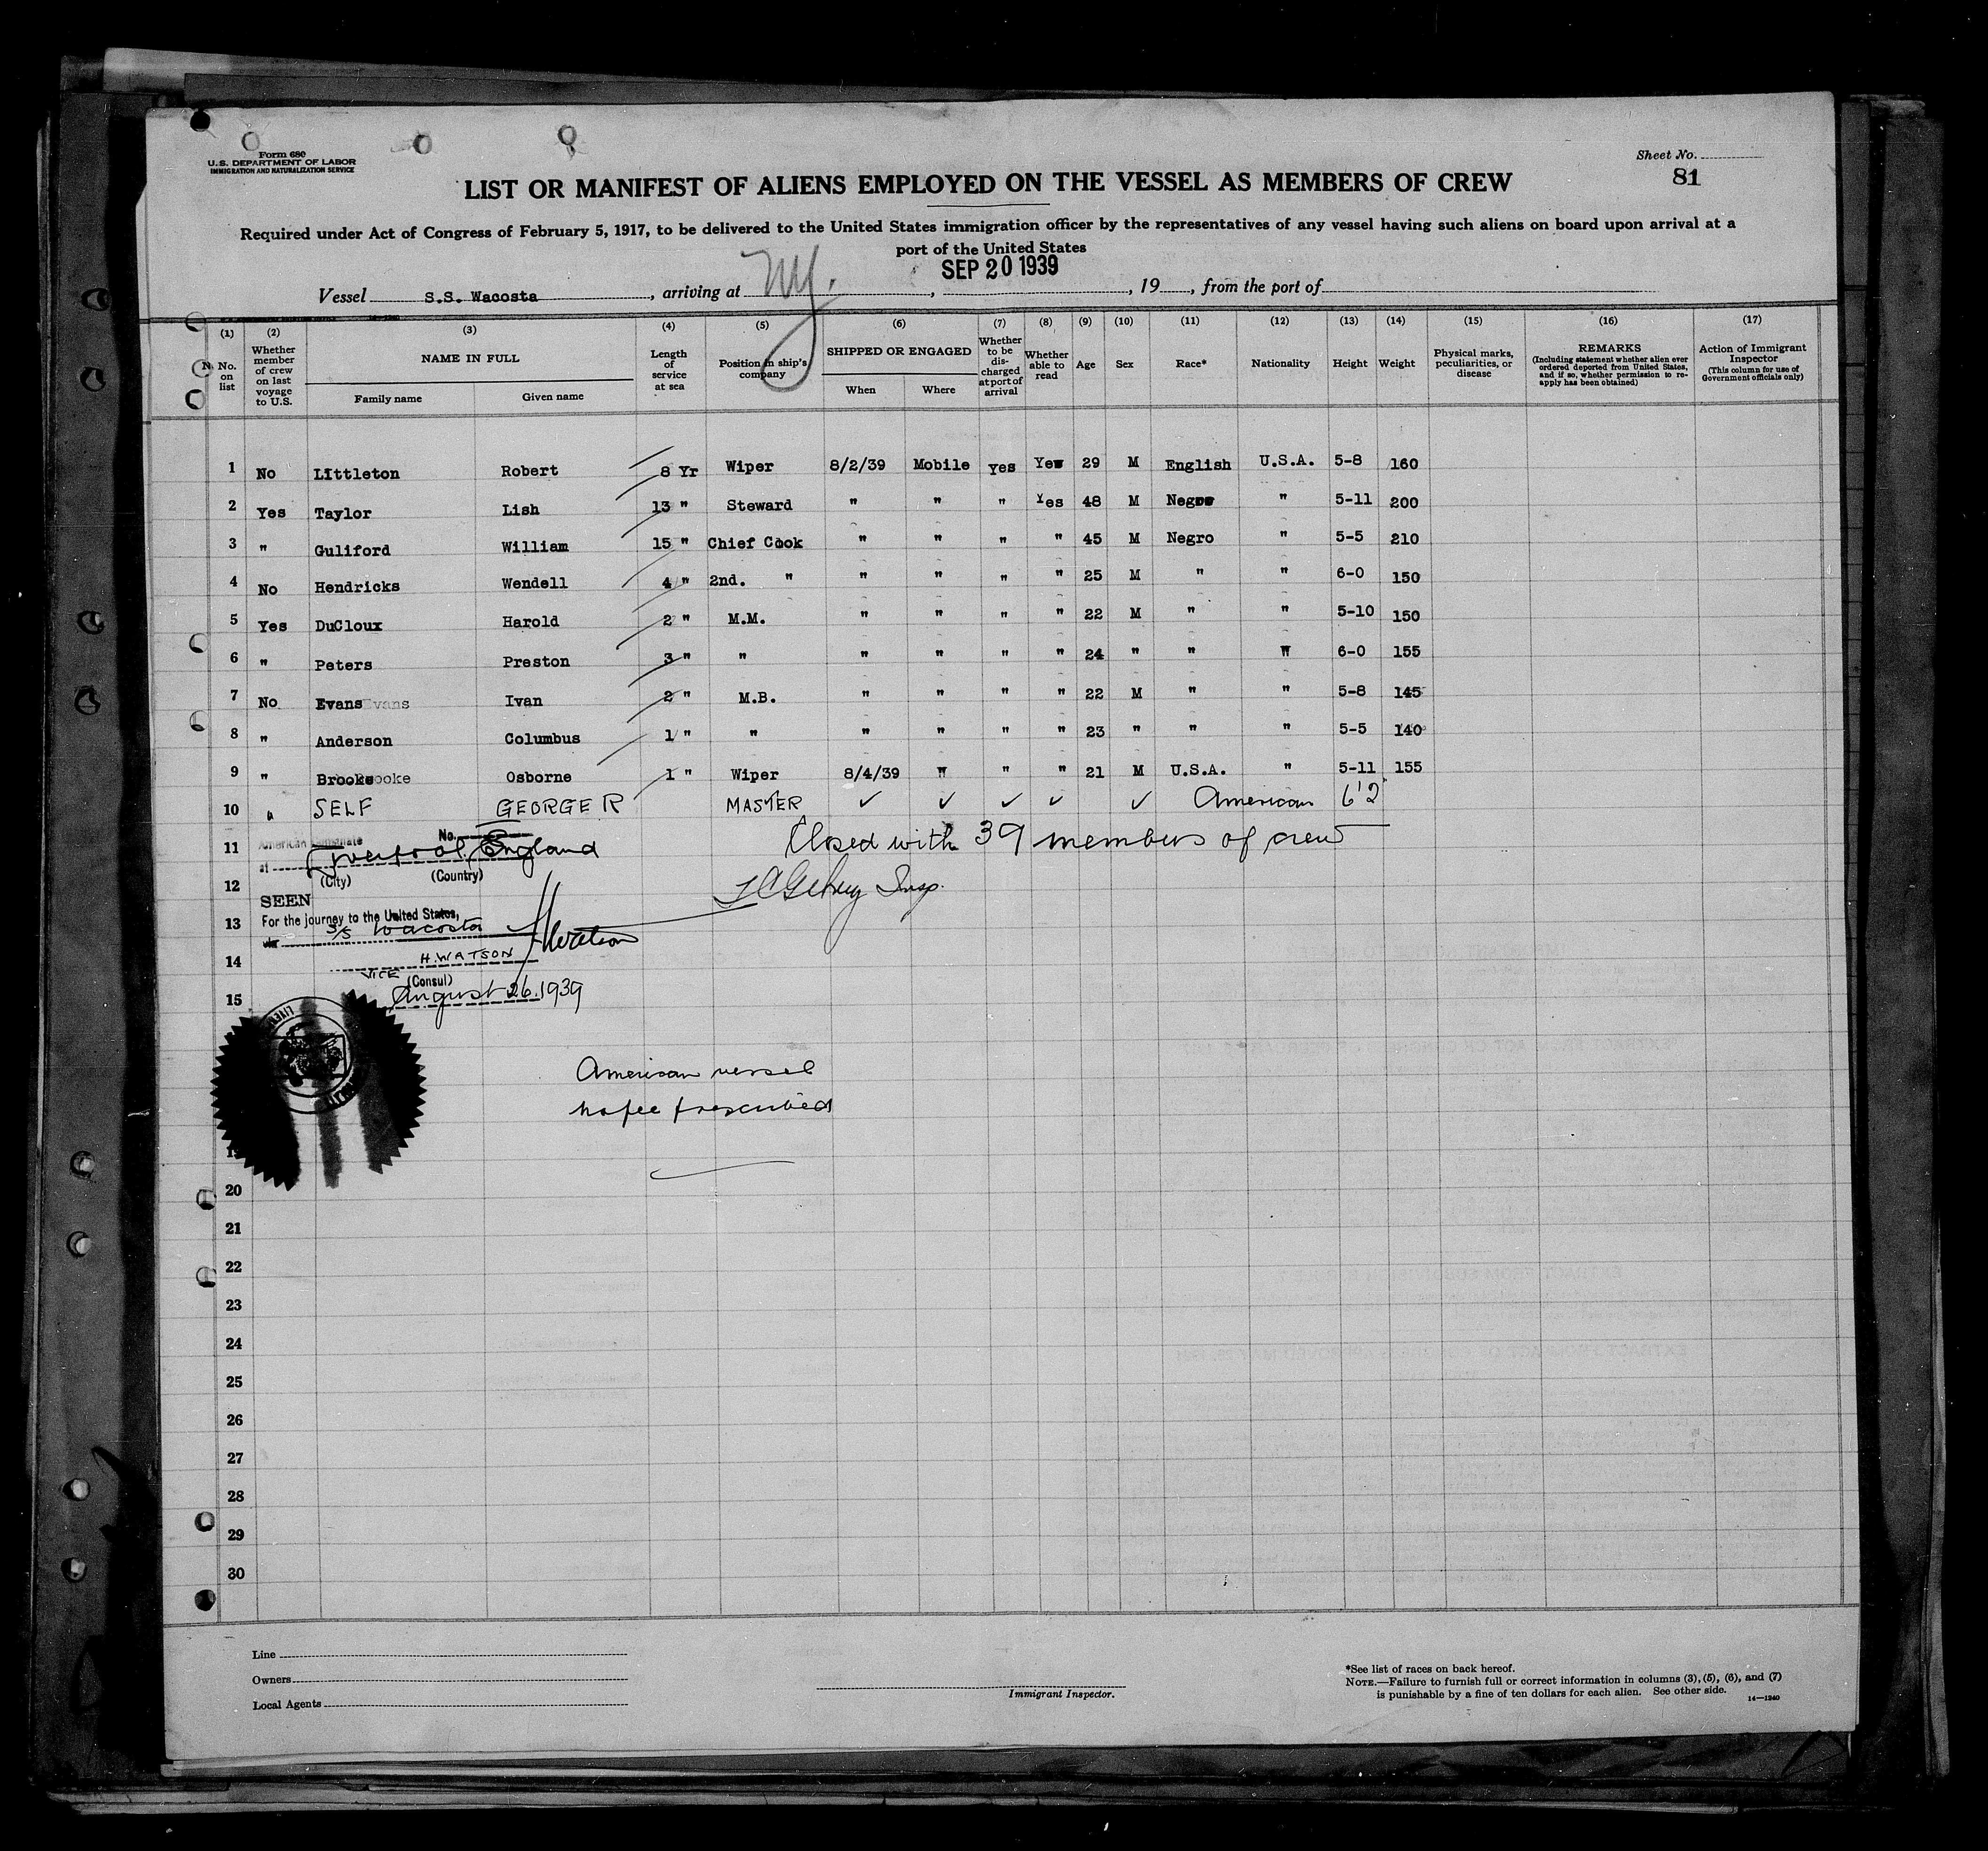 Form 680
U.S. DEPARTMENT OF LABOR
IMMIGRATION AND NATURALIZATION SERVICE
Sheet No.
81
LIST OR MANIFEST OF ALIENS EMPLOYED ON THE VESSEL AS MEMBERS OF CREW
Required under Act of Congress of February 5, 1917, to be delivered to the United States immigration officer by the representatives of any vessel having such aliens on board upon arrival at a
port of the United States
Vessel S.S. Wacosta, arriving at NY., SEP 20 1939, 19, from the port of
(1) (2) (3) (4) (5) (6) (7) (8) (9) (10) (11) (12) (13) (14) (15) (16) (17)
No. on list
Whether member of crew on last voyage to U.S.
NAME IN FULL
Family name Given name
Length of service at sea
Position in ship's company
SHIPPED OR ENGAGED
When Where
Whether to be discharged at port of arrival
Whether able to read
Age
Sex
Race*
Nationality
Height
Weight
Physical marks, peculiarities, or disease
REMARKS
(Including statement whether alien ever ordered deported from United States, and if so, whether permission to reapply has been obtained)
Action of Immigrant Inspector
(This column for use of Government officials only)
1 No LIttleton Robert 8 Yr Wiper 8/2/39 Mobile Yes Yes 29 M English U.S.A. 5-8 160
2 Yes Taylor Lish 13 " Steward " " " Yes 48 M Negro " 5-11 200
3 " Guliford William 15 " Chief Cook " " " " 45 M Negro " 5-5 210
4 No Hendricks Wendell 4 " 2nd. " " " " " 25 M " " 6-0 150
5 Yes DuCloux Harold 2 " M.M. " " " " 22 M " " 5-10 150
6 " Peters Preston 3 " " " " " " 24 " " " 6-0 155
7 No Evans Ivan 2 " M.B. " " " " 22 M " " 5-8 145
8 " Anderson Columbus 1 " " " " " " 23 " " " 5-5 140
9 " Brooke Osborne 1 " Wiper 8/4/39 " " " 21 M U.S.A. " 5-11 155
10 " SELF GEORGE R MASTER ✓ ✓ ✓ ✓ ✓ American 6'2
11 American Consulate No.
at Liverpool England
(City) (Country)
Closed with 39 members of crew
12 Insp.
SEEN
13 For the journey to the United States,
S/S Wacosta
HWatson
14 H. WATSON
VICE (Consul)
15 August 26. 1939
American vessel
no fee prescribed
20
21
22
23
24
25
26
27
28
29
30
Line
Owners
Local Agents
Immigrant Inspector.
*See list of races on back hereof.
NOTE.—Failure to furnish full or correct information in columns (3), (5), (6), and (7)
is punishable by a fine of ten dollars for each alien. See other side.
14—1240